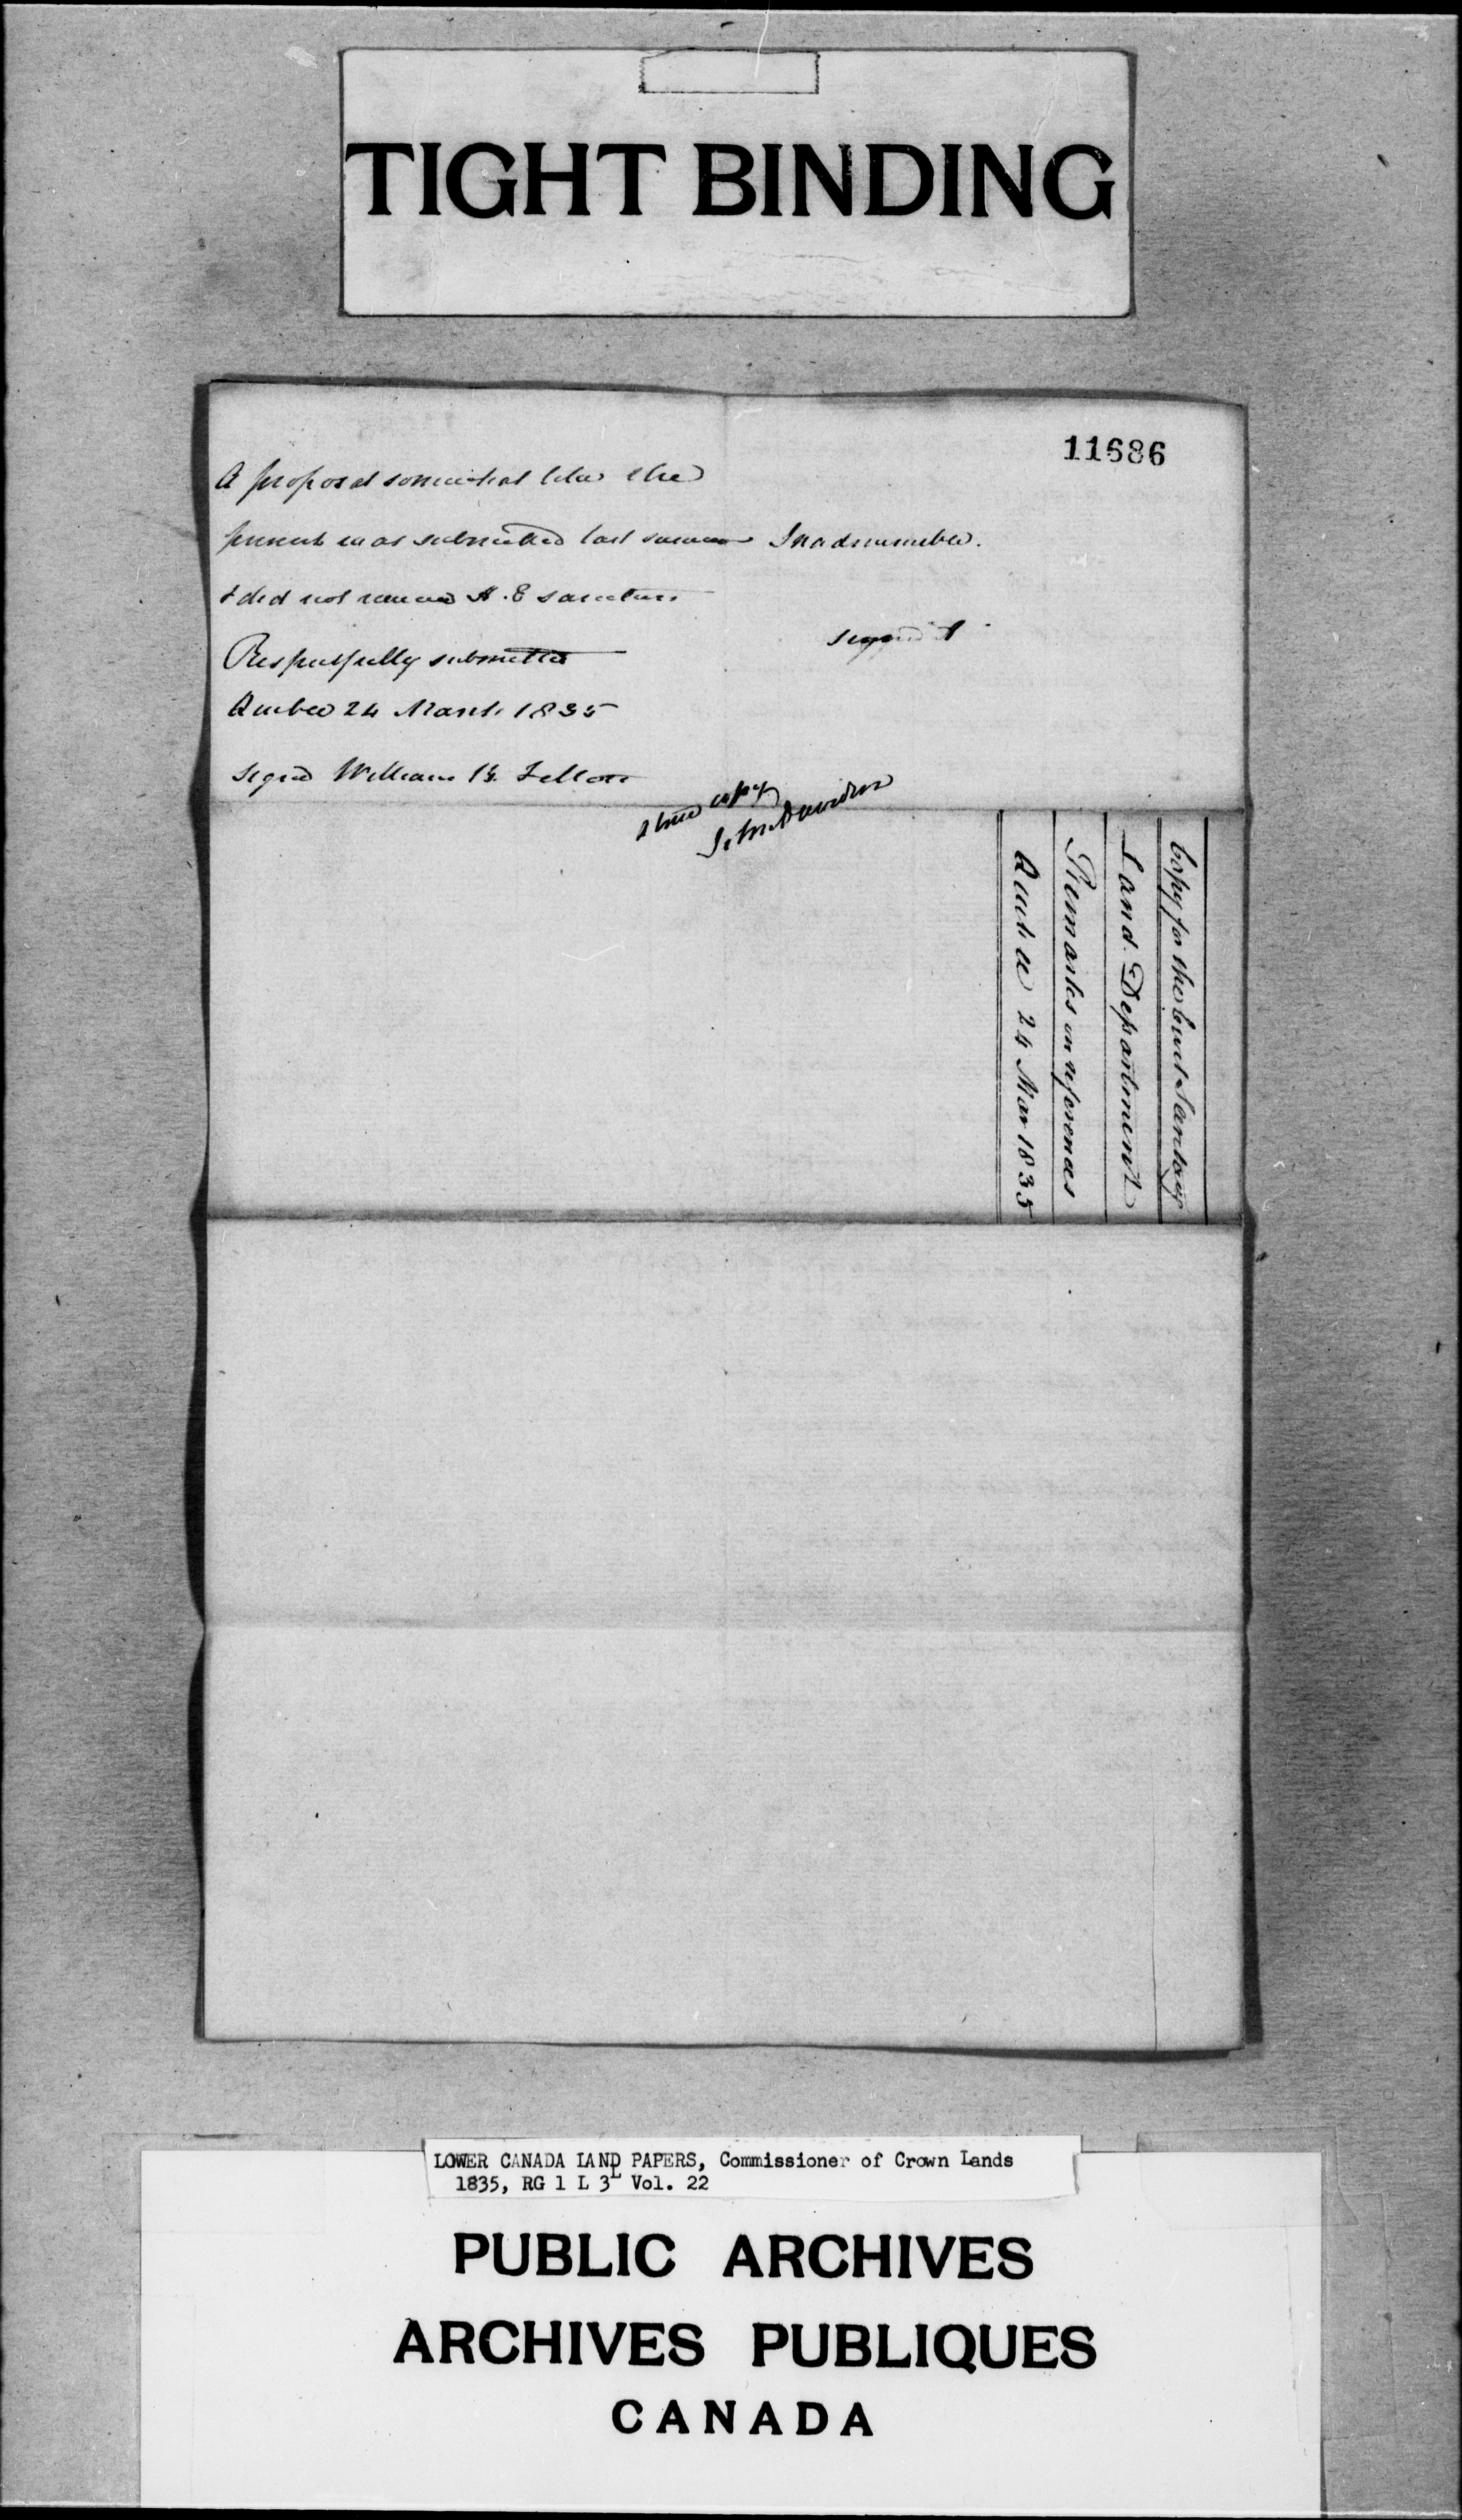 TIGHT BINDING
11686
A proposal somewhat like the
present was submitted last summer
& did not receive H. E sanction
Respectfully submitted
Quebec 24 March 1835
signed William B. Felton
Inadmissible.
signed A
A true copy
John Davidson
Copy for the
Land Department
Remarks on references
Quebec 24 Mar 1835
LOWER CANADA LAND PAPERS, Commissioner of Crown Lands
1835, RG 1 L 3L Vol. 22
PUBLIC ARCHIVES
ARCHIVES PUBLIQUES
CANADA